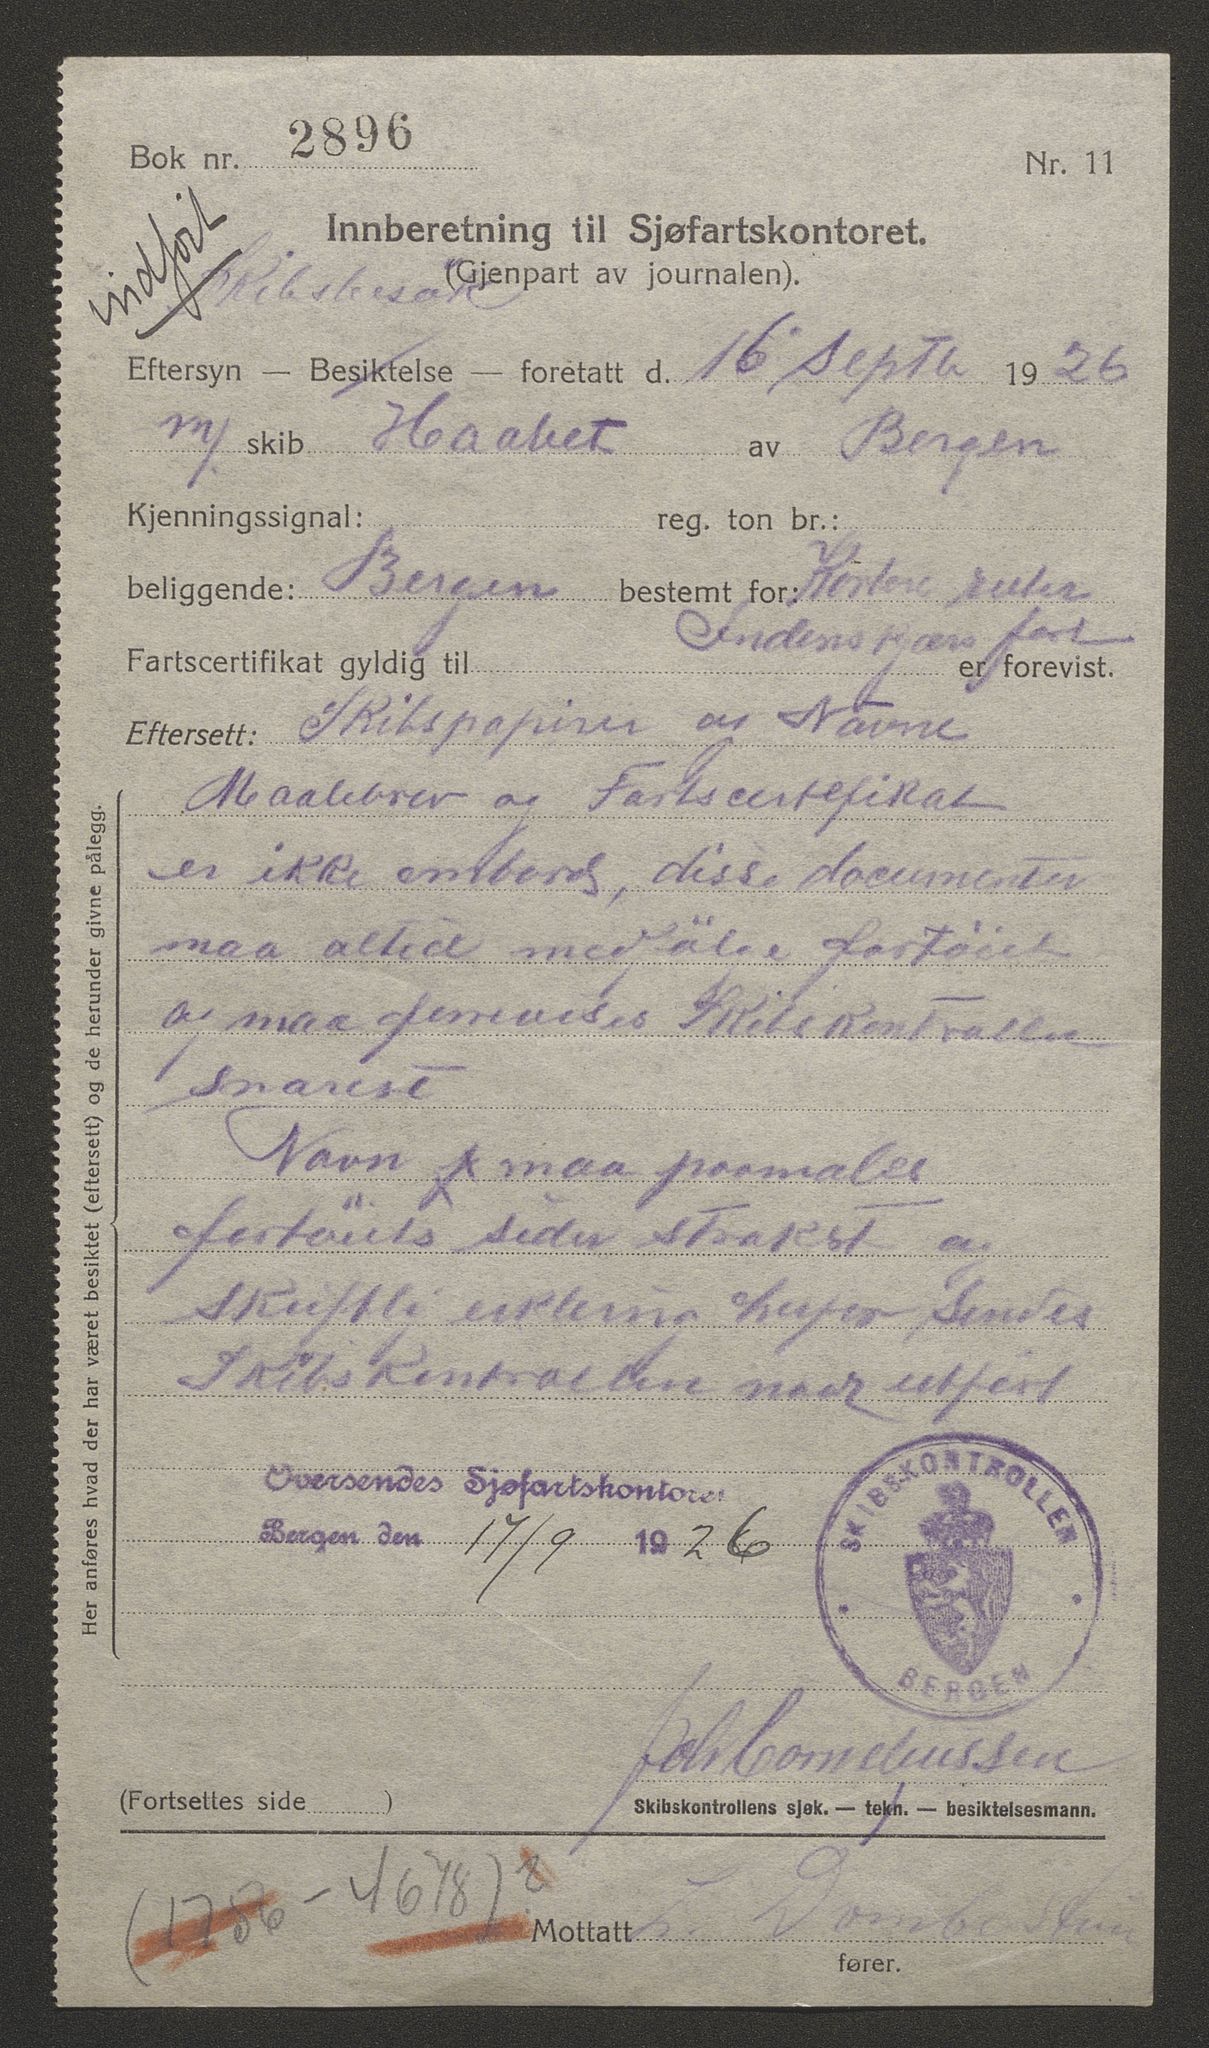 Bok nr. 2896
Nr. 11
indført
Innberetning til Sjøfartskontoret.
(Gjenpart av journalen).
Skibsbesøk
Eftersyn — Besiktelse — foretatt d. 16 Septb 1926
m/ skib Haabet av Bergen
Kjenningssignal: reg. ton br.:
beliggende: Bergen bestemt for: Kortere ruter
Indenskjærs fart
Fartscertifikat gyldig til er forevist.
Eftersett: Skibspapirer og Navne
Maalebrev og Fartscertefikat
er ikke ombord, disse documenter
maa altid medfölge fartöiet
og maa forevises Skibskontrollen
snarest
Navn maa paamales
fartöiets sider strakst og
Skriftli erklering herfor sendes
Skibskontrollen naar utfört
Her anføres hvad der har været besiktet (eftersett) og de herunder givne pålegg.
Oversendes Sjøfartskontoret
Bergen den 17/9 1926
SKIBSKONTROLLEN
BERGEN
Joh Corneliussen
(Fortsettes side )
Skibskontrollens sjøk. — tekn. — besiktelsesmann.
(1786 - 4678) ?
Mottatt
fører.